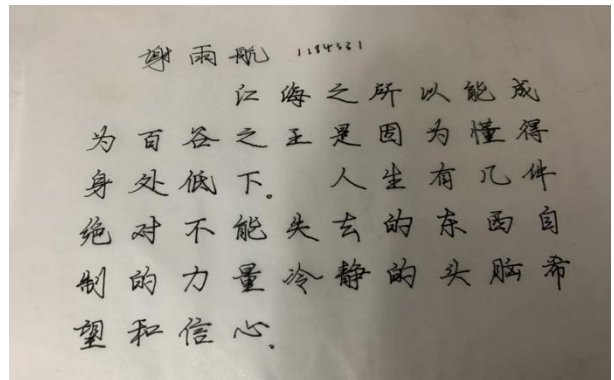 谢雨航 1184331
江海之所以能成
为百谷之王是因为懂得
身处低下。 人生有几件
绝对不能失去的东西自
制的力量冷静的头脑希
望和信心。